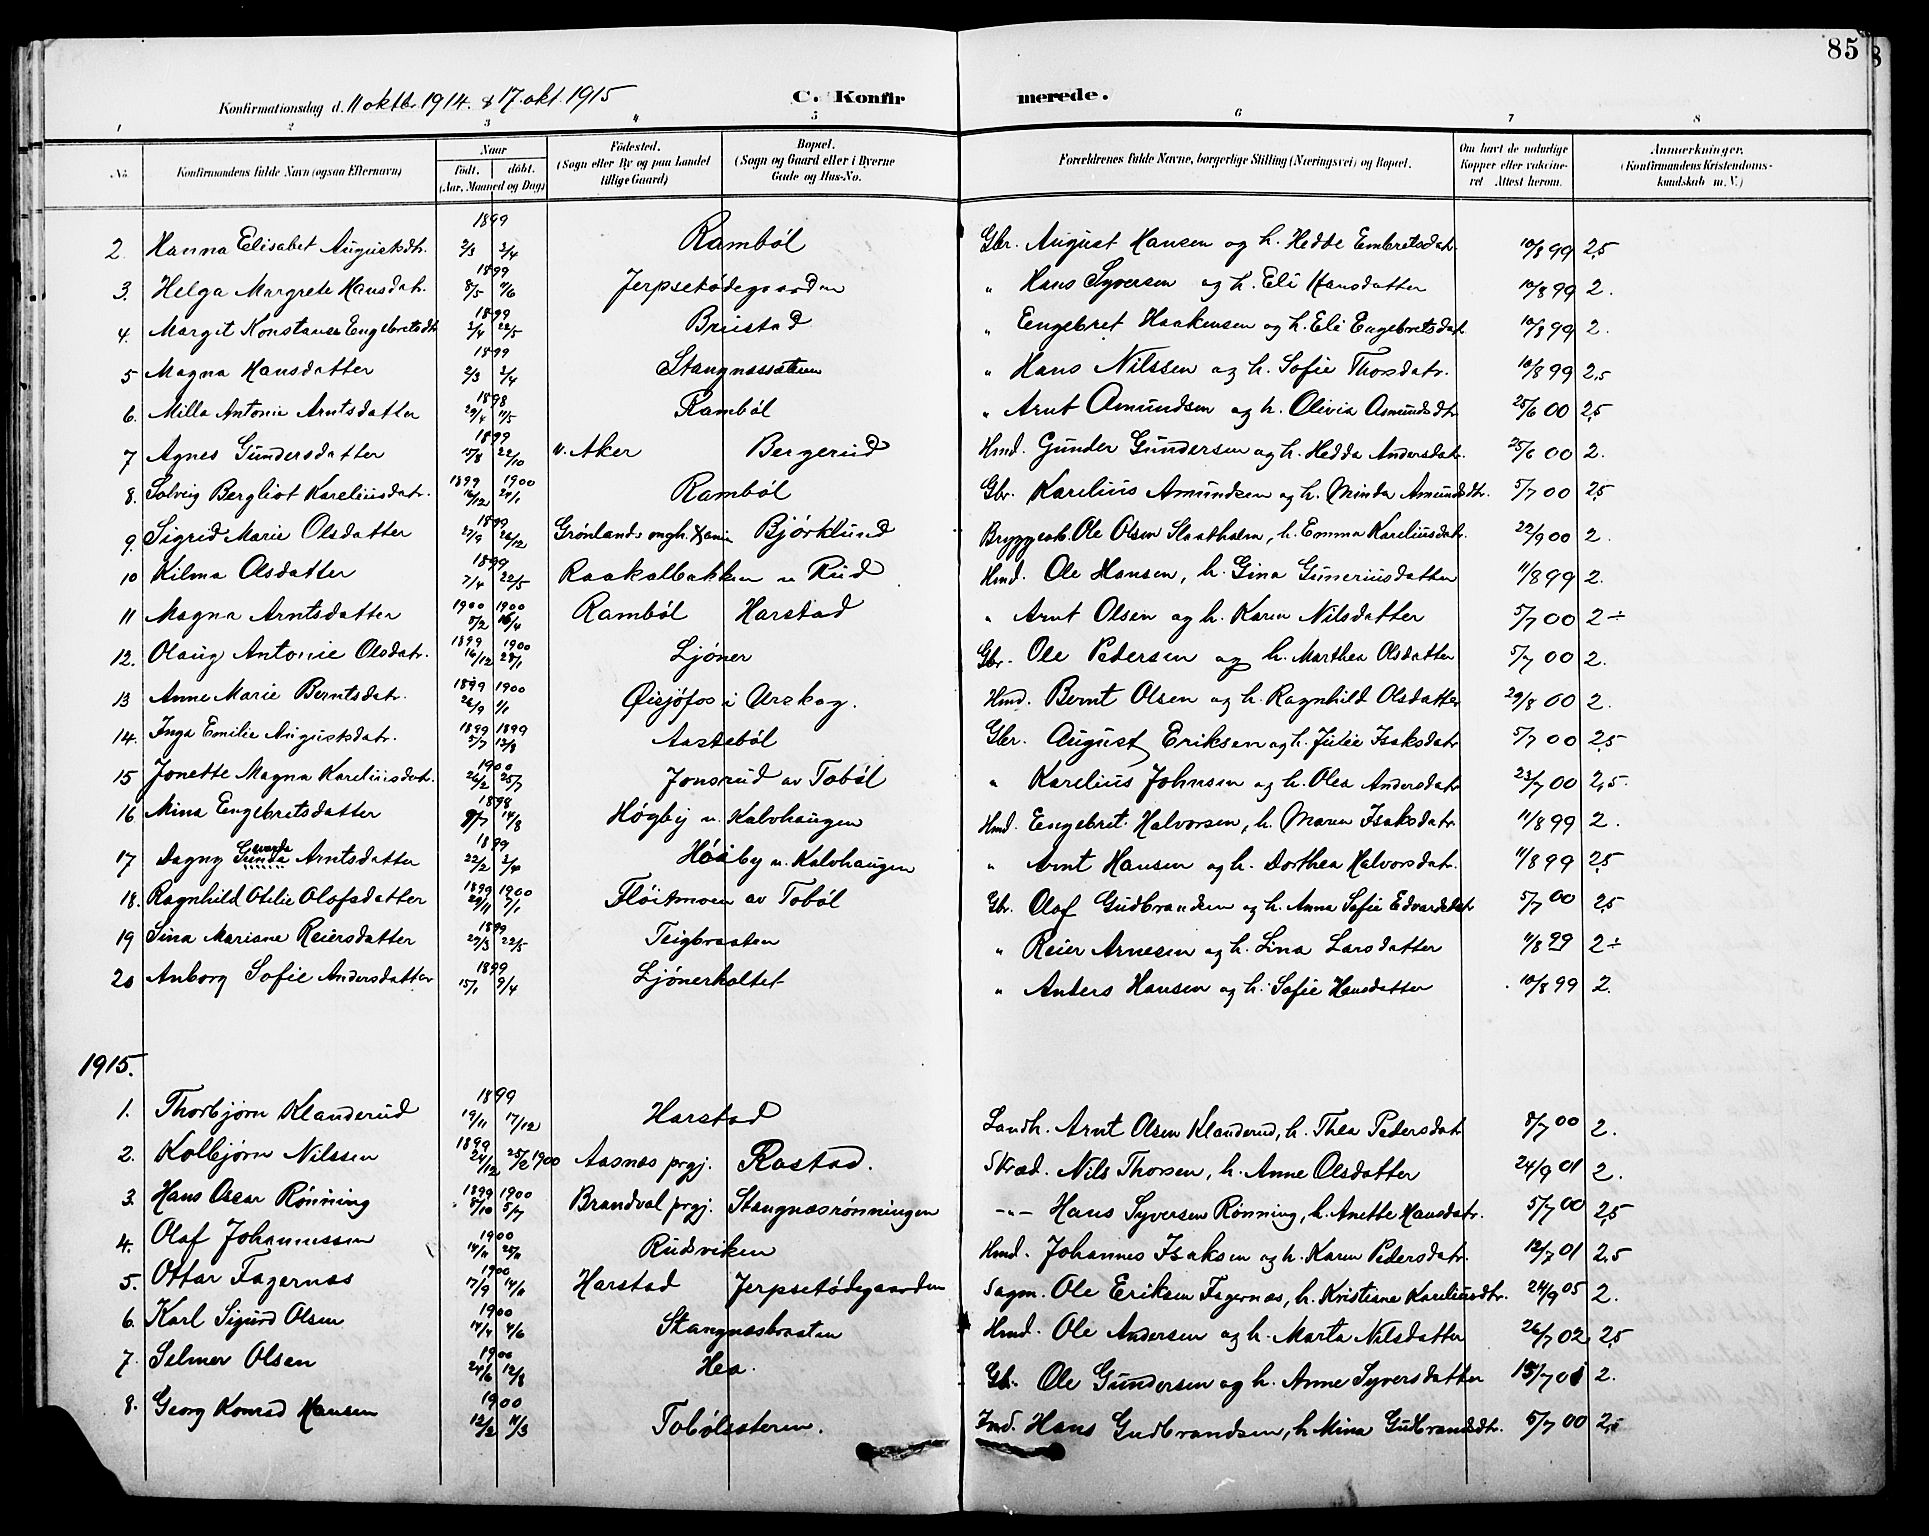 85
Konfirmationsdag d. 11 oktbr. 1914. & 17. okt. 1915 C. Konfirmerede.
1 2 3 4 5 6 7 8
No. Konfirmandens fulde Navn (ogsaa Efternavn) Naar født. døbt. (Aar, Maaned og Dag) Fødested. (Sogn eller By og paa Landet tillige Gaard) Bopæl. (Sogn og Gaard eller i Byerne Gade og Hus-No. Forældrenes fulde Navne, borgerlige Stilling (Næringsvei) og Bopæl. Om havt de naturlige Kopper eller vaksineret Attest herom. Anmærkninger. (Konfirmandens Kristendomskundskab m. V.)
1899
2. Hanna Elisabet Augustsdtr. 2/3 2/4 Rambøl Gbr. August Hansen og h. Hedde Embretsdatr. 10/8 99 2,5
1899
3. Helga Margrete Hansdatr. 8/5 11/6 Jerpsetødegaarden " Hans Syversen og h. Eli Hansdatter 10/8 99 2.
1899
4. Margit Konstanse Engebretsdt. 2/4 22/5 Brustad " Engebret Haakensen og h. Eli Engebretsdat. 10/8 99 2.
1899
5 Magna Hansdatter 2/3 2/4 Stangnessæteren " Hans Nilssen og h. Sofie Thorsdatr. 10/8 99 2,5
1898
6. Milla Antonie Arntsdatter 29/4 11/5 Rambøl " Arnt Asmundsen og h. Olivia Asmundsdtr. 25/6 00 2,5
1899
7 Agnes Gundersdatter 15/8 22/10 v. Aker Bergerud Hmd. Gunder Gundersen og h. Hedda Andersdatr. 25/6 00 2.
1899 1900
8. Solveig Bergliot Kareliusdatr. 16/12 21/1 Rambøl Gbr. Karelius Amundsen og h. Minda Amundsdtr. 5/7 00 2,5
1899
9. Sigrid Marie Olsdatter 27/9 26/12 Grønlands mgh. Xania Bjørklund Bryggearb. Ole Olsen Slaatholm, h. Emma Kareliusdatr. 22/9 00 2.
1899
10 Kilma Olsdatter 7/4 22/5 Raakalbakken u Rud Hmd. Ole Hansen, h. Gina Guneriusdatter 11/8 99 2.
1900 1900
11 Magna Arntsdatter 5/2 16/4 Rambøl Harstad " Arnt Olsen og h. Karen Nilsdatter 5/7 00 2÷
1899 1900
12. Olaug Antonie Olsdatr. 16/12 28/1 Ljøner Gbr. Ole Pedersen og h. Marthea Olsdatter 5/7 00 2.
1899 1900
13 Anne Marie Berntsdatr. 26/9 1/1 Øisjøfos i Aaskog. Hmd. Bernt Olsen og h. Ragnhild Olsdatter 29/8 00 2.
1899 1899
14. Inga Emilie Augustsdatr. 5/7 13/8 Aastebøl Gbr. August Eriksen og h. Julie Isaksdatr 5/7 00 2,5
1900
15 Jonette Magna Kareliusdatr. 26/2 25/7 Jonsrud av Tobøl " Karelius Johnsen og h. Olea Andersdatr 23/7 00 2,5.
1898
16 Mina Engebretsdatter 8/7 14/8 Høgby u. Kalvhaugen Hmd. Engebret Halvorsen, h. Maren Isaksdatr. 11/8 99 2.
1899
17 Dagny Gunda Arntsdatter 22/2 2/4 Høiby u. Kalvhaugen " Arnt Hansen og h. Dorthea Halvorsdatr. 11/8 99 2,5
1899 1900
18. Ragnhild Otilie Olafsdatter 29/11 7/1 Fløitmoen av Tobøl Gbr. Olaf Gudbrandsen og h. Anna Sofie Edvardsdatr 5/7 00 2,5
1899
19 Sina Mariane Reiersdatter 29/3 22/5 Teigbraaten " Reier Arnesen og h. Lina Larsdatter 11/8 99 2÷
1899
20 Anborg Sofie Andersdatter 15/1 9/4 Ljønerholtet " Anders Hansen og h. Sofie Hansdatter 10/8 99 2.
1915.
1899
1. Thorbjørn Klanderud 19/11 17/12 Harstad Landh. Arnt Olsen Klanderud, h. Thea Pedersdat. 8/7 00 2.
1899
2. Kolbjørn Nilssen 24/12 25/2 1900 Aasnes prgj. Rastad. Skræd. Nils Thorsen, h. Anne Olsdatter 24/9 01 2.
1899 1900
3. Hans Oscar Rønning 5/10 5/7 Brandval prgj. Stangnæsrønningen -"- Hans Syversen Rønning, h. Anette Hansdatr. 5/7 00 2,5
1900
4. Olaf Johannessen 14/11 25/11 Rudsviken Hmd. Johannes Isaksen og h. Karen Pedersdatr. 12/7 01 2,5
1900
5. Ottar Fagernæs 17/9 14/11 Harstad Jerpsetødegaarden Sagm. Ole Eriksen Fagernæs, h. Kristiane Kareliusdtr. 24/9 05 2.
1900
6. Karl Sigurd Olsen 14/4 4/6 Stangnæsbraaten Hmd. Ole Andersen og h. Marta Nilsdatter 26/7 02 2,5
1900
7. Selmer Olsen 24/6 12/8 Hea. Gb. Ole Gundersen og h. Anne Syversdatter 15/7 01 2.
1900
8. Georg Konrad Hansen 12/2 11/3 Tobølsæteren. Ind. Hans Gudbrandsen, h Mina Gudbrandsdtr. 5/7 00 2,5